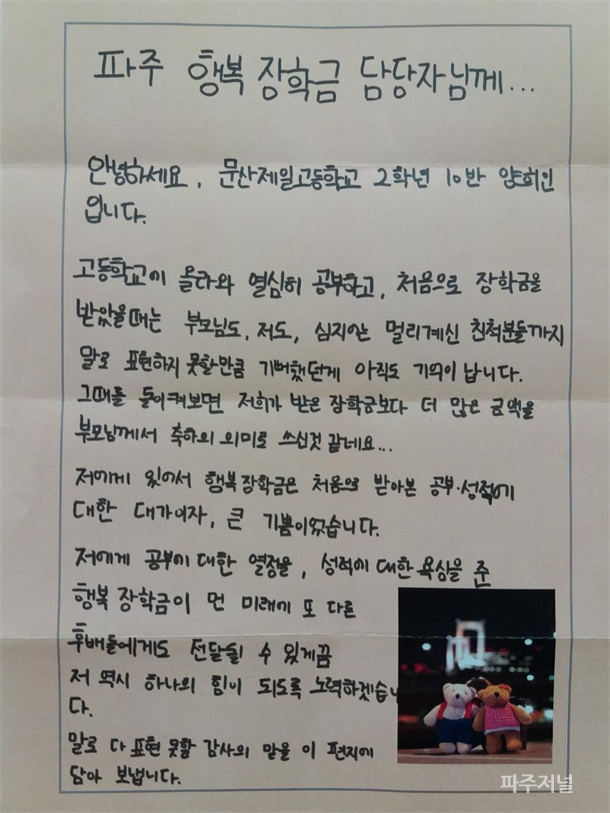 파주 행복 장학금 담당자님께...
안녕하세요, 문산제일고등학교 2학년 10반 양희인
입니다.
고등학교에 올라와 열심히 공부하고, 처음으로 장학금을
받았을때는 부모님도, 저도, 심지어는 멀리계신 친척분들까지
말로 표현하지 못할만큼 기뻐했던게 아직도 기억이 납니다.
그때를 돌이켜보면 저희가 받은 장학금보다 더 많은 금액을
부모님께서 축하의 의미로 쓰신것 같네요...
저에게 있어서 행복장학금은 처음으로 받아본 공부·성적에
대한 대가이자, 큰 기쁨이었습니다.
저에게 공부에 대한 열정을, 성적에 대한 욕심을 준
행복 장학금이 먼 미래에 또 다른
후배들에게도 전달될 수 있게끔
저 역시 하나의 힘이 되도록 노력하겠습니
다.
말로 다 표현 못할 감사의 말을 이 편지에
담아 보냅니다.
파주저널